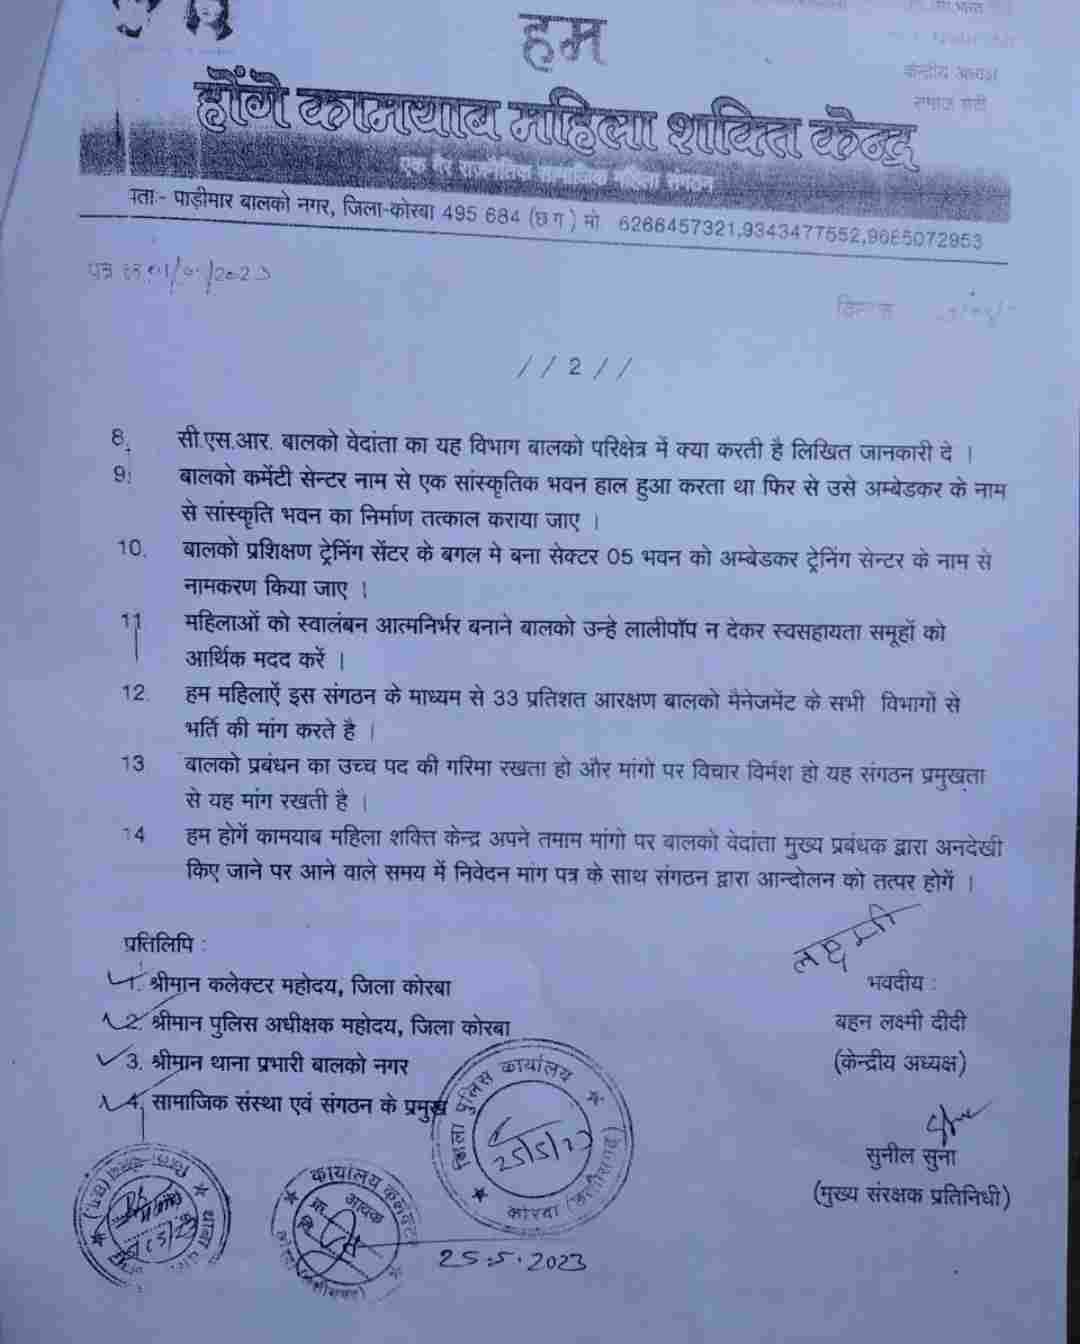 हम
होंगे कामयाब महिला शक्ति केन्द्र
एक गैर राजनैतिक सामाजिक महिला संगठन
केन्द्रीय अध्यक्ष
पताः- पाड़ीमार बालको नगर, जिला-कोरबा 495 684 (छ ग ) मो 6266457321,9343477552,9685072953
पत्र
दिनांक
//2//
8. सी.एस.आर. बालको वेदांता का यह विभाग बालको परिक्षेत्र में क्या करती है लिखित जानकारी दे ।
9. बालको कमेंटी सेन्टर नाम से एक सांस्कृतिक भवन हाल हुआ करता था फिर से उसे अम्बेडकर के नाम
से सांस्कृति भवन का निर्माण तत्काल कराया जाए ।
10. बालको प्रशिक्षण ट्रेनिंग सेंटर के बगल मे बना सेक्टर 05 भवन को अम्बेडकर ट्रेनिंग सेन्टर के नाम से
नामकरण किया जाए ।
11 महिलाओं को स्वालंबन आत्मनिर्भर बनाने बालको उन्हे लालीपॉप न देकर स्वसहायता समूहों को
आर्थिक मदद करें ।
12. हम महिलाऐं इस संगठन के माध्यम से 33 प्रतिशत आरक्षण बालको मैनेजमेंट के सभी विभागों से
भर्ति की मांग करते है ।
13 बालको प्रबंधन का उच्च पद की गरिमा रखता हो और मांगो पर विचार विर्मश हो यह संगठन प्रमुखता
से यह मांग रखती है ।
14 हम होगें कामयाब महिला शक्ति केन्द्र अपने तमाम मांगो पर बालको वेदांता मुख्य प्रबंधक द्वारा अनदेखी
किए जाने पर आने वाले समय में निवेदन मांग पत्र के साथ संगठन द्वारा आन्दोलन को तत्पर होगें ।
लक्ष्मी
प्रतिलिपि :
भवदीय :
1. श्रीमान कलेक्टर महोदय, जिला कोरबा
बहन लक्ष्मी दीदी
2. श्रीमान पुलिस अधीक्षक महोदय, जिला कोरबा
(केन्द्रीय अध्यक्ष)
3. श्रीमान थाना प्रभारी बालको नगर
4. सामाजिक संस्था एवं संगठन के प्रमुख
सुनील सुना
(मुख्य संरक्षक प्रतिनिधी)
जिला पुलिस कार्यालय
कोरबा (छत्तीसगढ़)
25/5/23
कार्यालय कलेक्टर
आवक
25.5.2023